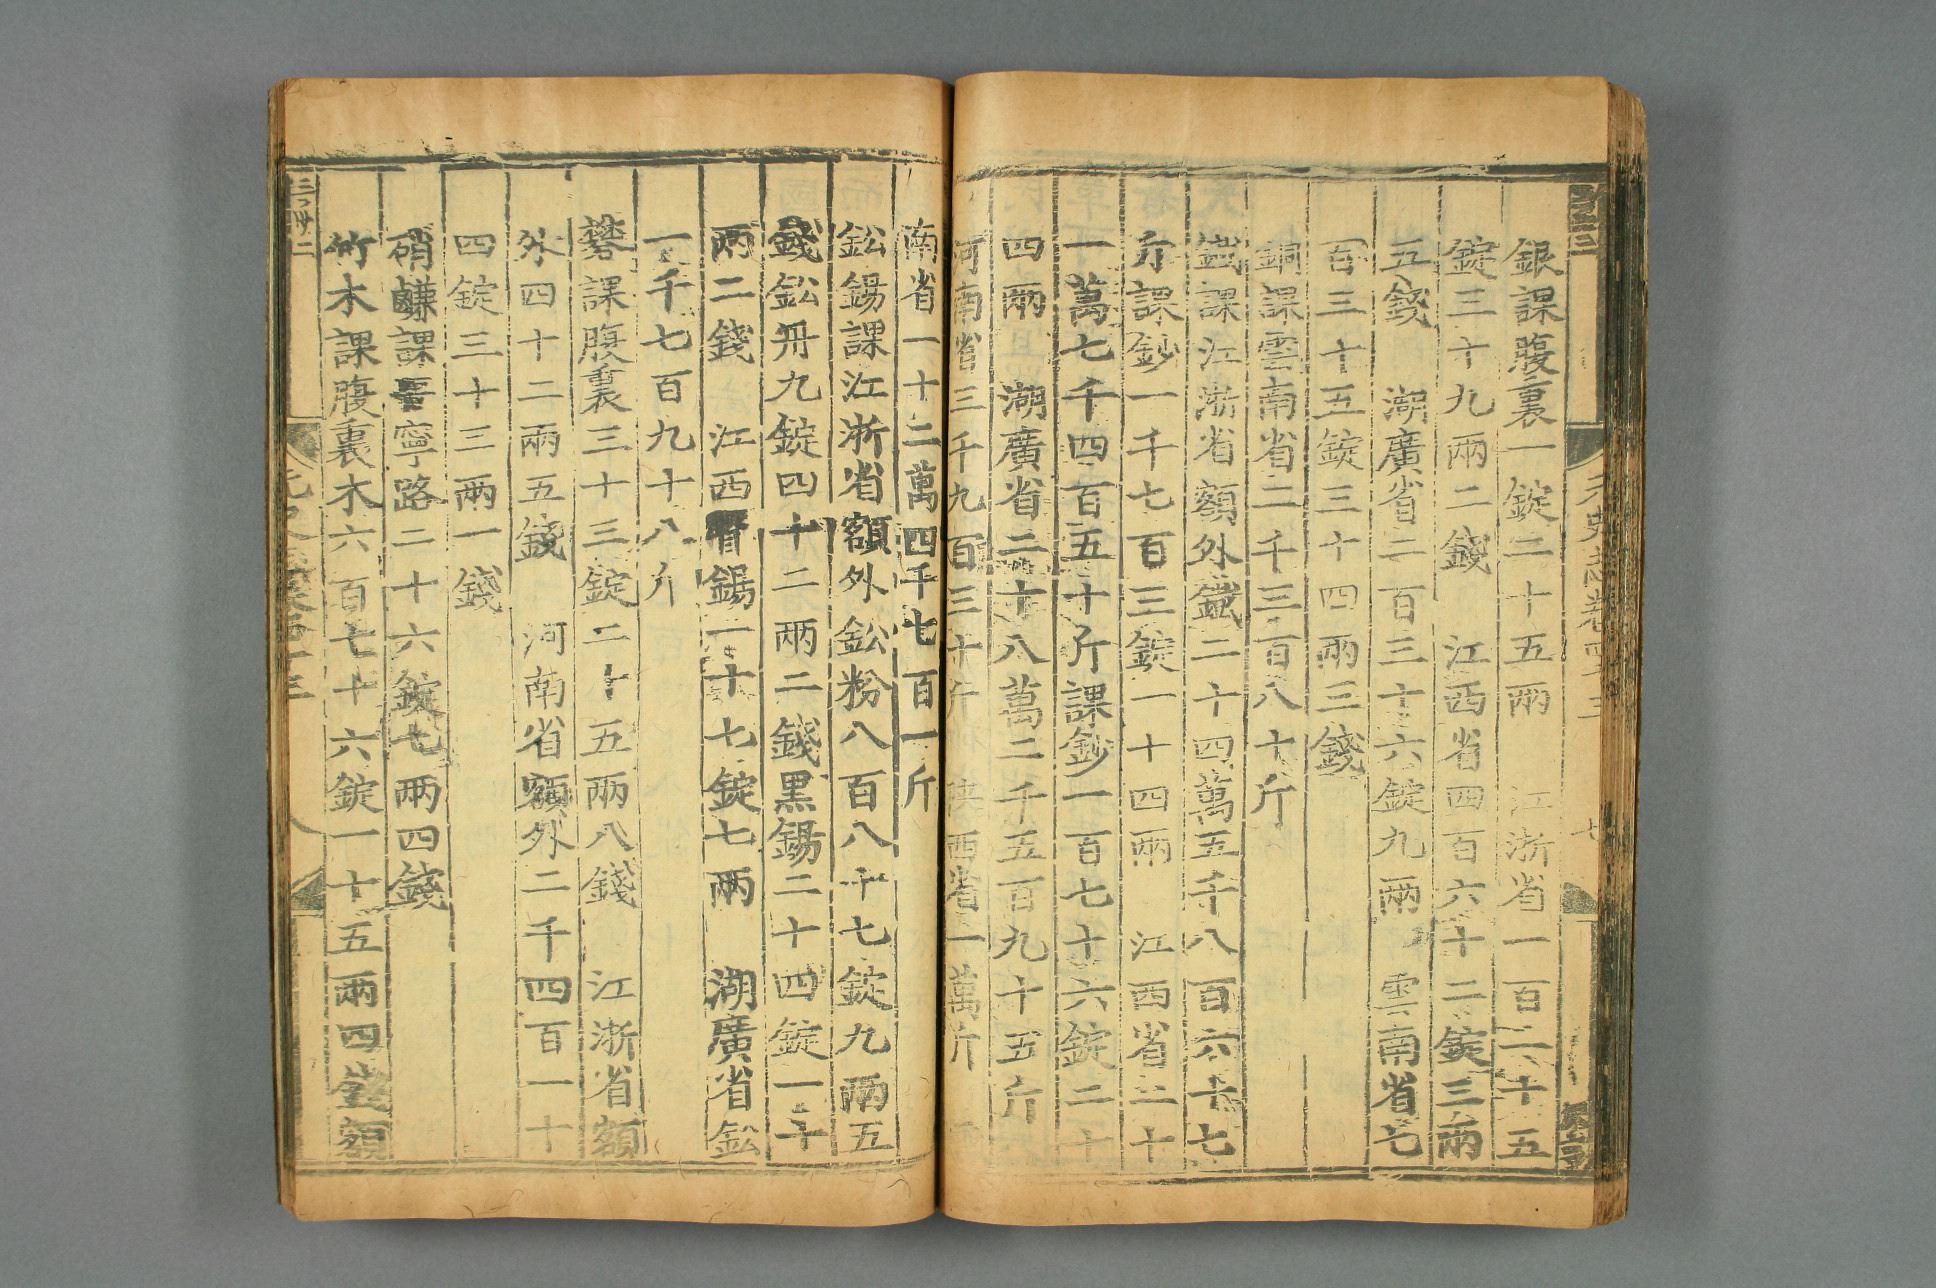 元史志卷四十三
銀課腹裏一錠二十五兩　江浙省一百二十五
錠三十九兩二錢　江西省四百六十二錠三兩
五錢　湖廣省二百三十六錠九兩　雲南省七
百三十五錠三十四兩三錢
銅課雲南省二千三百八十斤
鐵課江浙省額外鐵二十四萬五千八百六十七
斤課鈔一千七百三錠一十四兩　江西省二十
一萬七千四百五十斤課鈔一百七十六錠二十
四兩　湖廣省二十八萬二千五百九十五斤
河南省三千九百三十斤　陝西省一萬斤
南省一十二萬四千七百一斤
鈆錫課江浙省額外鈆粉八百八十七錠九兩五
錢鈆丹九錠四十二兩二錢黑錫二十四錠一十
兩二錢　江西省錫一十七錠七兩　湖廣省鈆
一千七百九十八斤
礬課腹裏三十三錠二十五兩八錢　江浙省額
外四十二兩五錢　河南省額外二千四百一十
四錠三十三兩一錢
硝鹻課晉寧路二十六錠七兩四錢
竹木課腹裏木六百七十六錠一十五兩四錢額